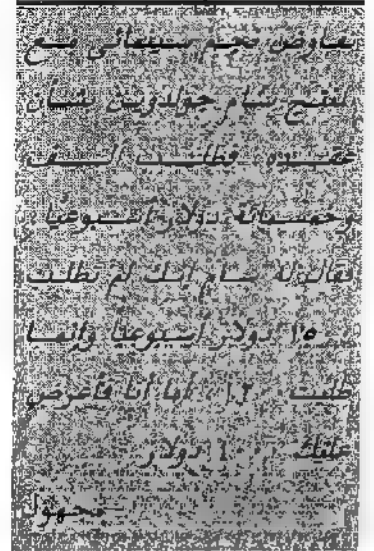 تفاوض نجم سينمائي مع
المنتج سام جولدوين بشأن
عقده، فطلب ألف
وخمسمائة دولار أسبوعيا
فقال له سام إنك لم تطلب
دولار أسبوعياً وإنما
طلبت أما أنا فأعرض
عليك دولار
مجهول